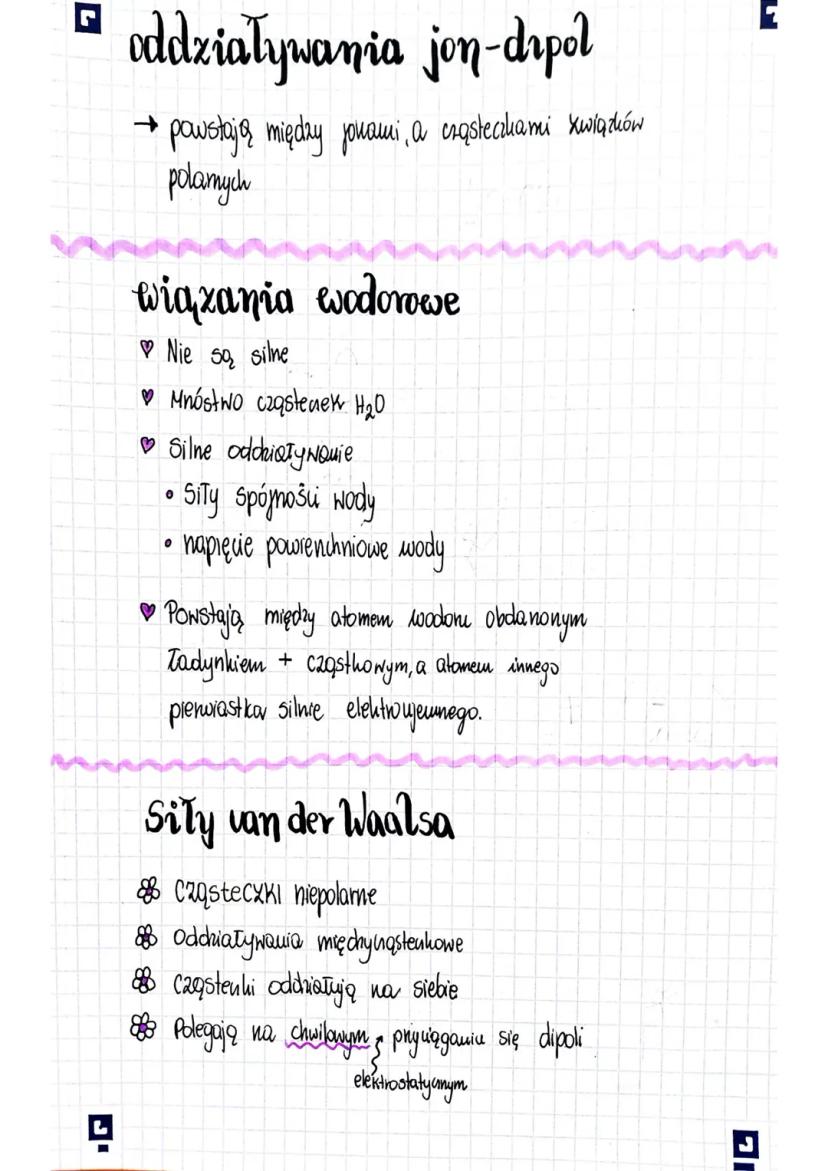 oddziaływania jon-dipol
→ powstają między jonami, a cząsteczkami związków
polarnych
wiązania wodorowe
♥ Nie są silne
♥ Mnóstwo cząsteczek H₂O
♥ Silne oddziaływanie
• siły spójności wody
• napięcie powierzchniowe wody
♥ Powstają między atomem wodoru obdarzonym
ładynkiem + cząstkowym, a atomem innego
pierwiastka silnie elektroujemnego.
siły van der Waalsa
Cząsteczki niepolarne
Oddziaływania międzycząsteczkowe
Cząsteczki oddziałują na siebie
Polegają na chwilowym przyciąganiu się dipoli
elektrostatycznym